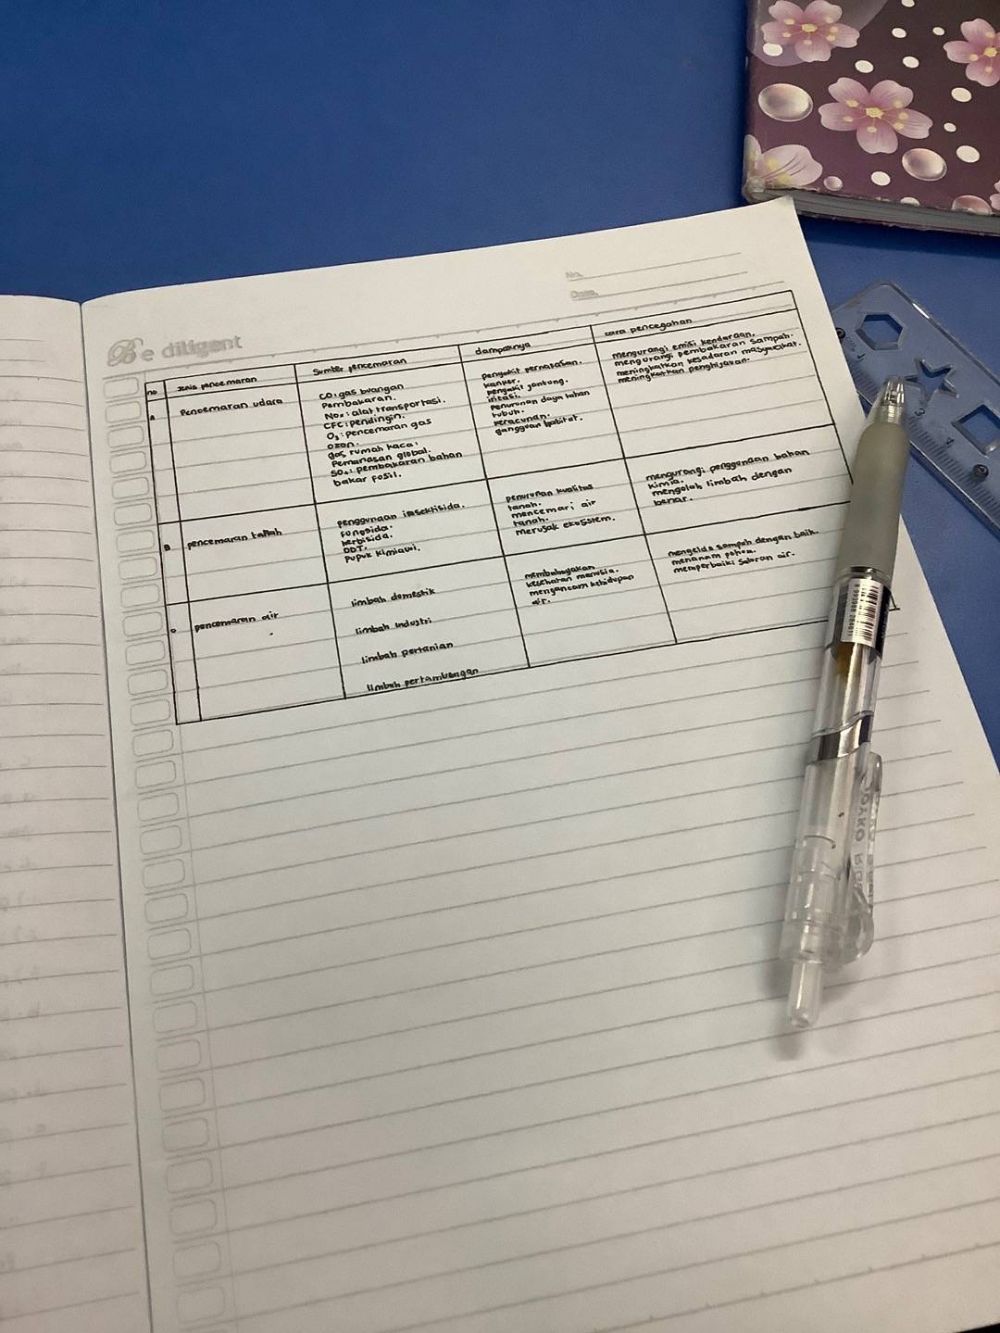 No.
Date.
Be diligent
no
Jenis pencemaran
Sumber pencemaran
dampaknya
cara pencegahan
A
Pencemaran udara
CO: gas buangan
Pembakaran.
NO₂: alat transportasi.
CFC: pendingin.
O₃: pencemaran gas
ozon.
gas rumah kaca:
Pemanasan global.
SO₂: pembakaran bahan
bakar fosil.
penyakit pernafasan.
kanker.
penyakit jantung.
iritasi.
Penurunan daya tahan
tubuh.
keracunan.
gangguan habitat.
mengurangi emisi kendaraan.
mengurangi pembakaran sampah.
meningkatkan kesadaran masyarakat.
meningkatkan penghijauan.
B
pencemaran tanah
penggunaan insektisida.
fungsida.
herbisida.
DDT.
Pupuk kimiawi.
penurunan kualitas
tanah.
mencemari air
tanah.
merusak ekosistem.
mengurangi penggunaan bahan
kimia.
mengolah limbah dengan
benar.
pencemaran air
limbah domestik
limbah industri
limbah pertanian
limbah pertambangan
membahayakan
kesehatan manusia.
mengancam kehidupan
air.
mengelola sampah dengan baik.
menanam pohon.
memperbaiki saluran air.
JOYKO